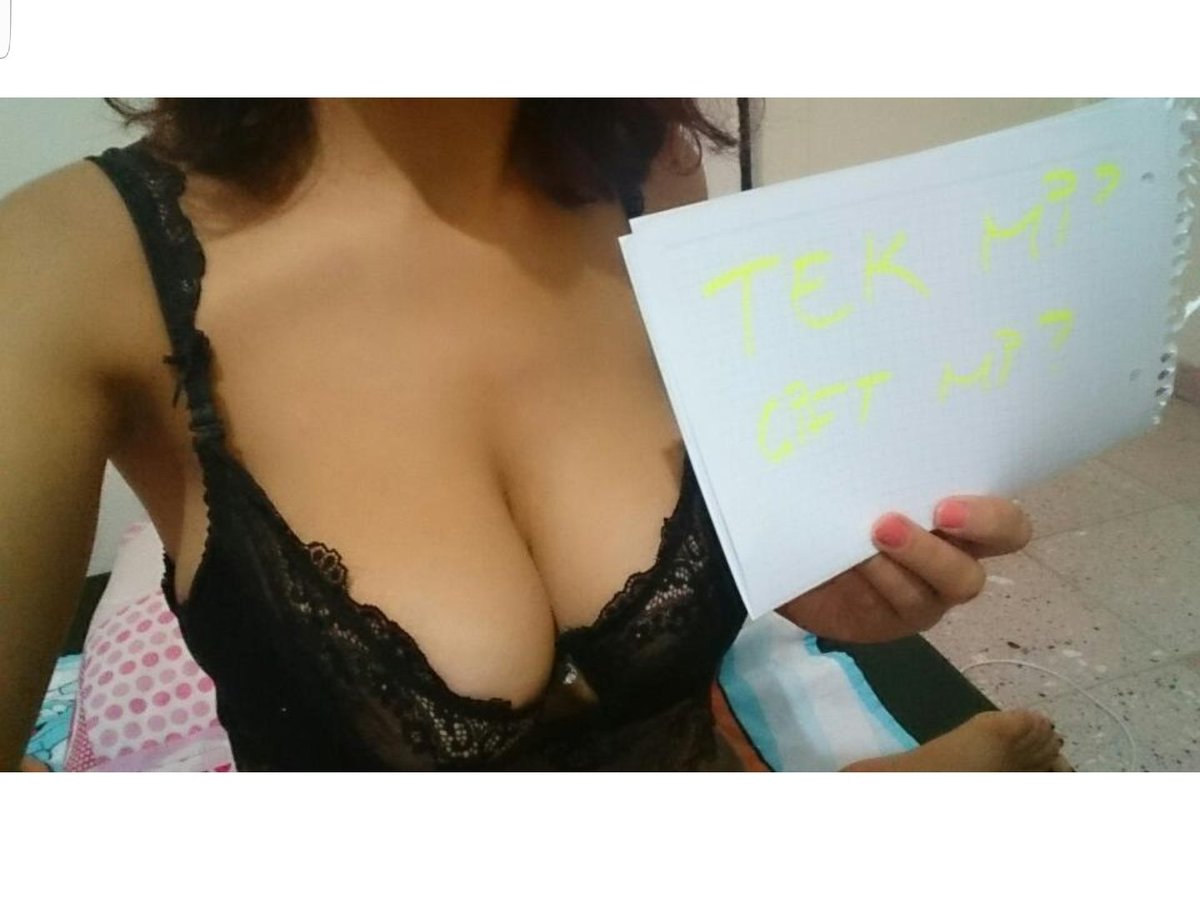 TEK Mİ?
ÇİFT Mİ?